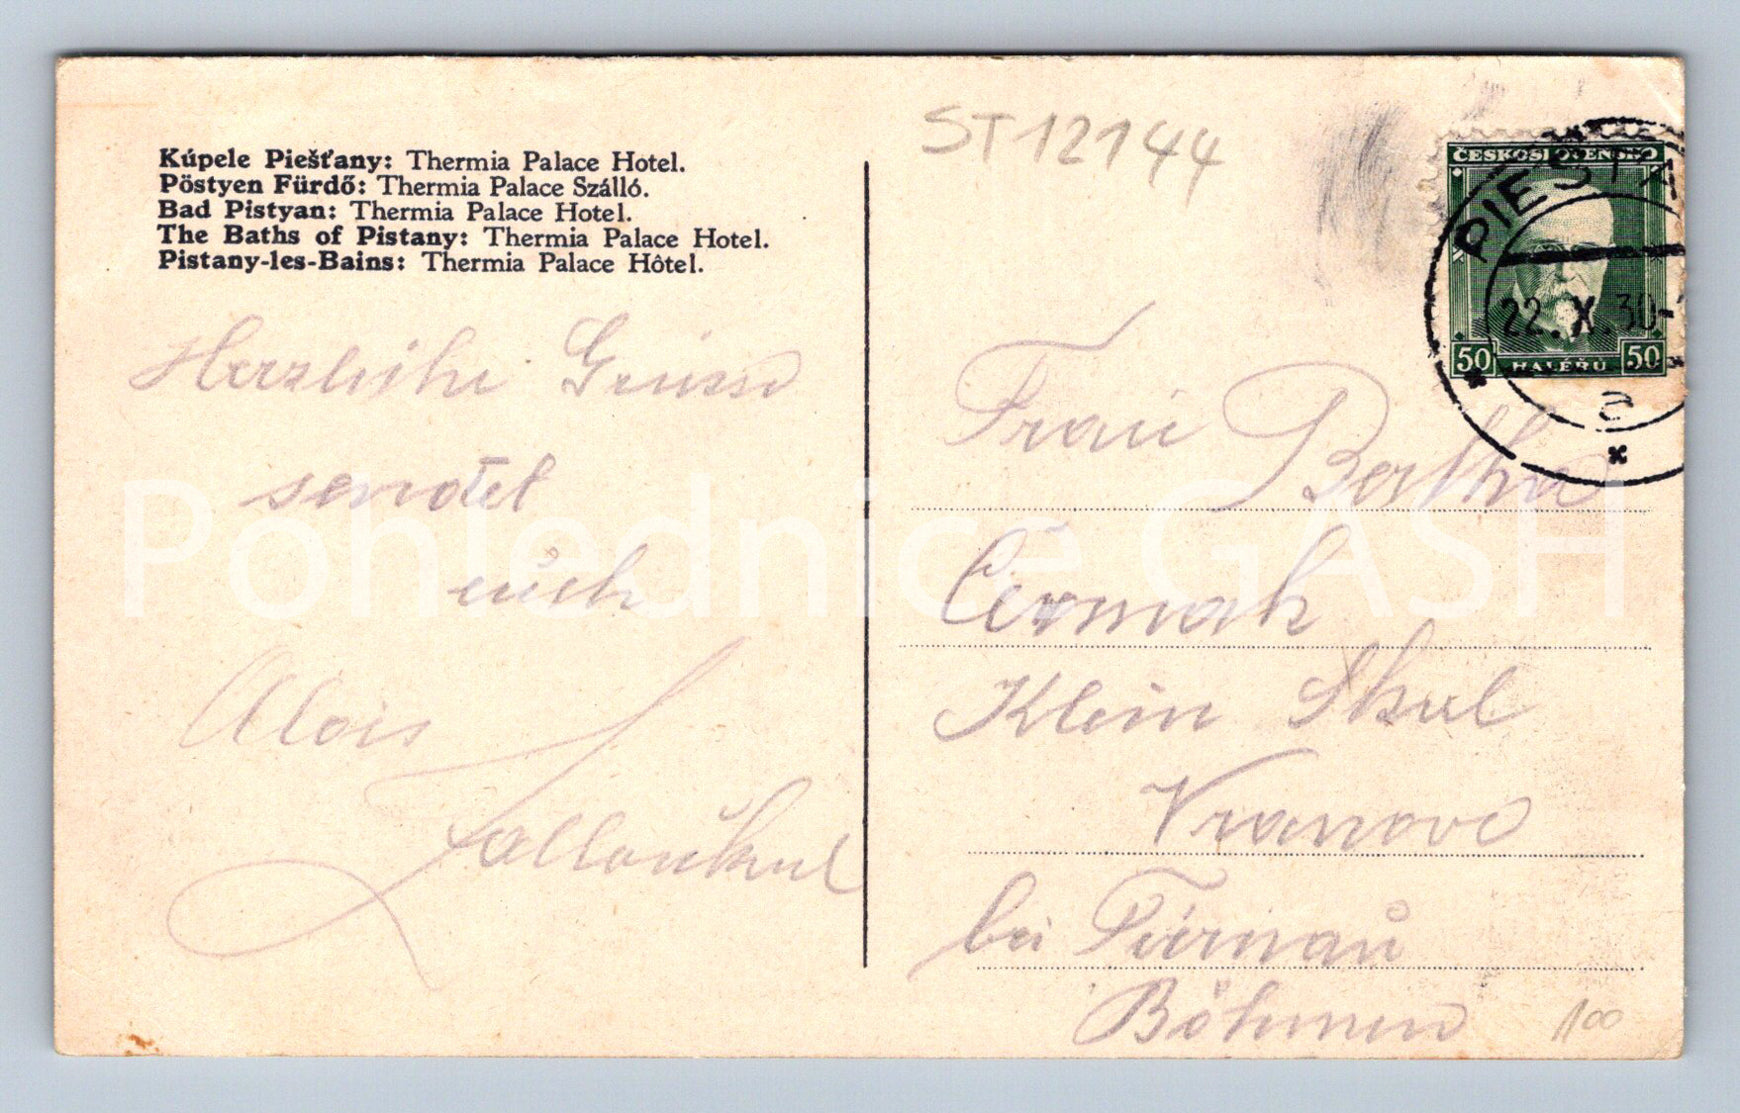 Kúpele Piešťany: Thermia Palace Hotel.
Pöstyen Fürdő: Thermia Palace Szálló.
Bad Pistyan: Thermia Palace Hotel.
The Baths of Pistany: Thermia Palace Hotel.
Pistany-les-Bains: Thermia Palace Hôtel.
Herzliche Grüsse
sendet
euch
Alois
ST12144
ČESKOSLOVENSKO
50 HALÉŘŮ 50
PIEŠŤA
22. X. 30
a
Frau Bertha
Čermak
Klein Skal
Vranove
bei Turnau
Böhmen
100
Pohlednice GASH